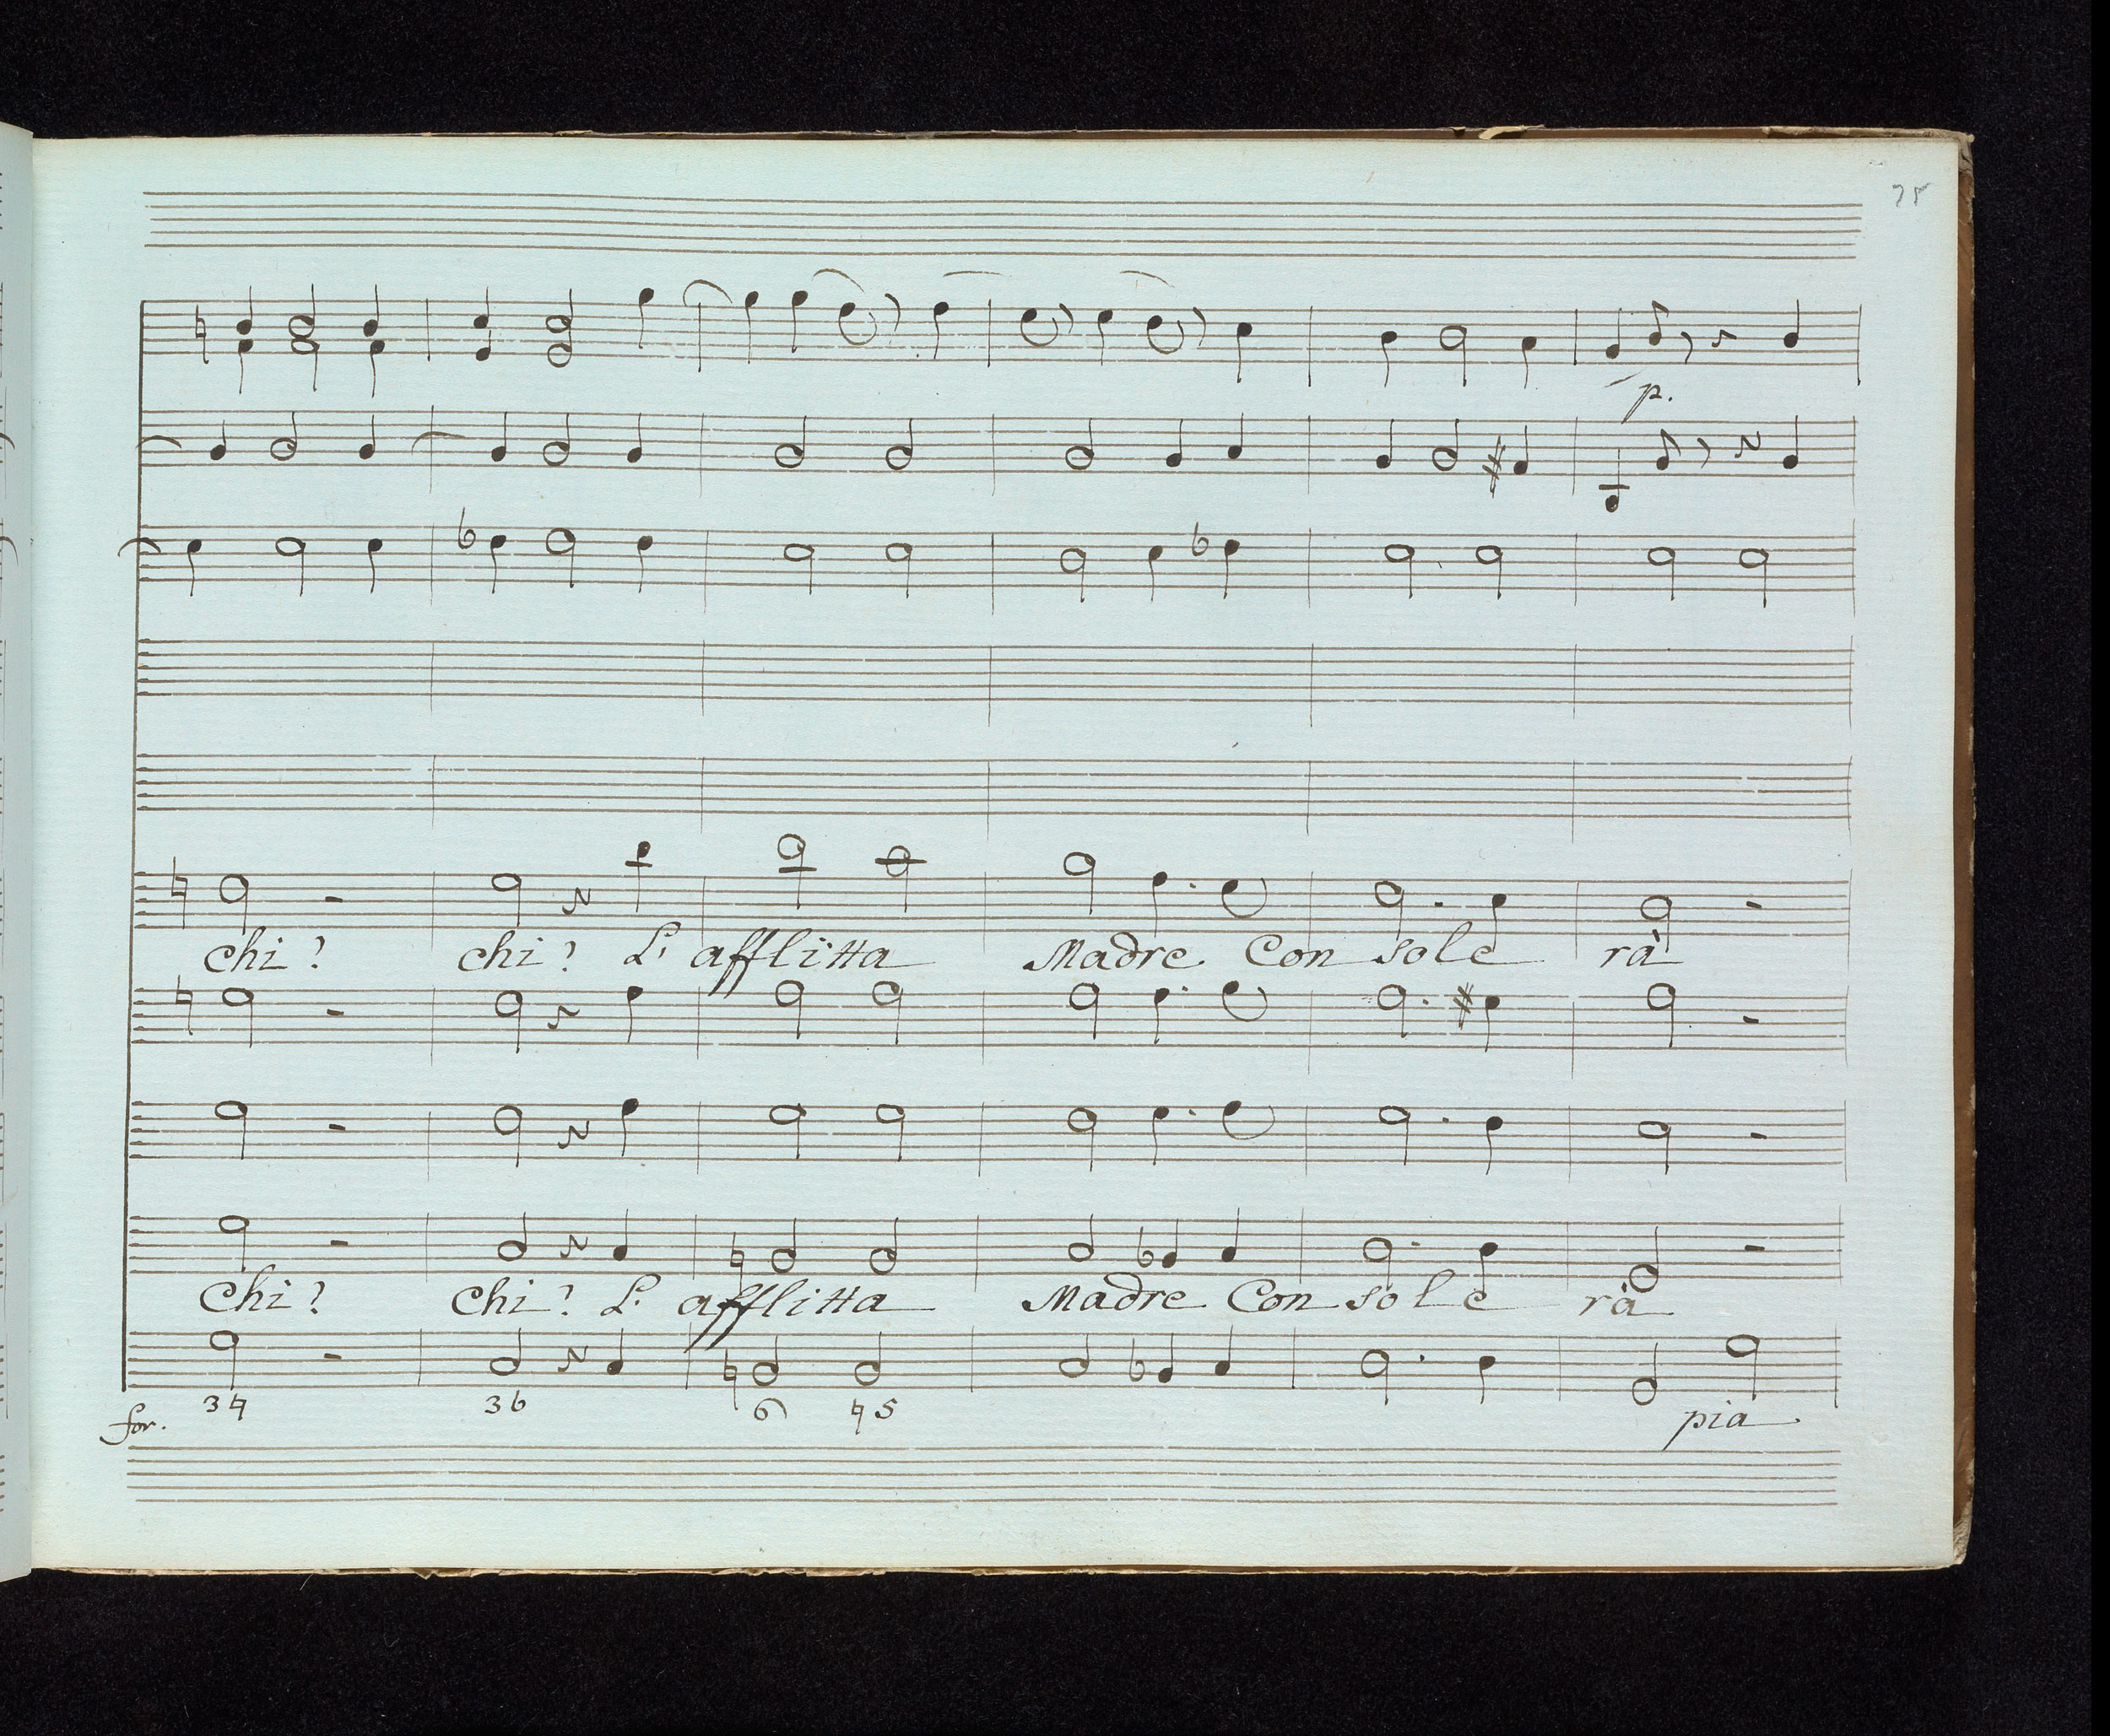 75
p.
chi? chi? L' afflitta Madre Con sole rà
chi? chi? L' afflitta Madre Con sole rà
3 ♮ 3 6 6 ♮ 5
for. pia